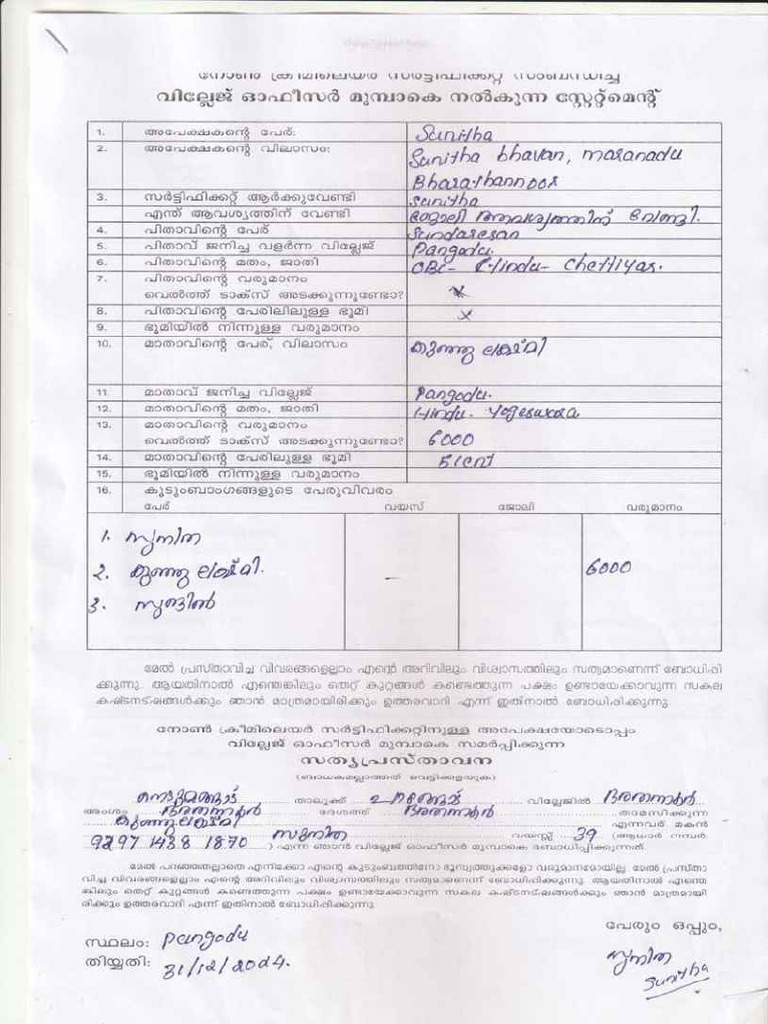 നോൺ ക്രീമിലെയർ സർട്ടിഫിക്കറ്റ് സംബന്ധിച്ച
വില്ലേജ് ഓഫീസർ മുമ്പാകെ നൽകുന്ന സ്റ്റേറ്റ്മെന്റ്
1. അപേക്ഷകന്റെ പേര്: Sunitha
2. അപേക്ഷകന്റെ വിലാസം: Sunitha bhavan, maranadu
Bharathannoor
3. സർട്ടിഫിക്കറ്റ് ആർക്കുവേണ്ടി Sunitha
എന്ത് ആവശ്യത്തിന് വേണ്ടി ജോലി ആവശ്യത്തിന് വേണ്ടി.
4. പിതാവിന്റെ പേര് Sundaresan
5. പിതാവ് ജനിച്ച വളർന്ന വില്ലേജ് Pangodu.
6. പിതാവിന്റെ മതം, ജാതി OBC- Hindu- Chettiyar.
7. പിതാവിന്റെ വരുമാനം
വെൽത്ത് ടാക്സ് അടക്കുന്നുണ്ടോ? x
8. പിതാവിന്റെ പേരിലിലുള്ള ഭൂമി x
9. ഭൂമിയിൽ നിന്നുള്ള വരുമാനം
10. മാതാവിന്റെ പേര്, വിലാസം കുഞ്ഞു ലക്ഷ്മി
11. മാതാവ് ജനിച്ച വില്ലേജ് Pangodu.
12. മാതാവിന്റെ മതം, ജാതി Hindu. Yogeswara
13. മാതാവിന്റെ വരുമാനം
വെൽത്ത് ടാക്സ് അടക്കുന്നുണ്ടോ? 6000
14. മാതാവിന്റെ പേരിലുള്ള ഭൂമി
15. ഭൂമിയിൽ നിന്നുള്ള വരുമാനം
16. കുടുംബാംഗങ്ങളുടെ പേരുവിവരം
പേര് വയസ് ജോലി വരുമാനം
1. സുനിത
2. കുഞ്ഞു ലക്ഷ്മി. - 6000
3. സുനിൽ
മേൽ പ്രസ്താവിച്ച വിവരങ്ങളെല്ലാം എന്റെ അറിവിലും വിശ്വാസത്തിലും സത്യമാണെന്ന് ബോധിപ്പി
ക്കുന്നു. ആയതിനാൽ എന്തെങ്കിലും തെറ്റ് കുറ്റങ്ങൾ കണ്ടെത്തുന്ന പക്ഷം ഉണ്ടായേക്കാവുന്ന സകല
കഷ്ടനഷ്ടങ്ങൾക്കും ഞാൻ മാത്രമായിരിക്കും ഉത്തരവാദി എന്ന് ഇതിനാൽ ബോധിപ്പിക്കുന്നു.
നോൺ ക്രീമിലെയർ സർട്ടിഫിക്കറ്റിനുള്ള അപേക്ഷയോടൊപ്പം
വില്ലേജ് ഓഫീസർ മുമ്പാകെ സമർപ്പിക്കുന്ന
സത്യപ്രസ്താവന
(ബാധകമല്ലാത്തത് വെട്ടിക്കളയുക)
നെടുമങ്ങാട് താലൂക്ക് പാങ്ങോട് വില്ലേജിൽ ഭരതന്നൂർ
അംശം ഭരതന്നൂർ ദേശത്ത് ഭരതന്നൂർ താമസിക്കുന്ന
കുഞ്ഞുലക്ഷ്മി എന്നവര് മകൻ
സുനിത വയസ്സ് 39 (ആധാർ നമ്പർ
9297 1438 1870 ) എന്ന ഞാൻ വില്ലേജ് ഓഫീസർ മുമ്പാകെ ബോധിപ്പിക്കുന്നത്.
മേൽ പറഞ്ഞതല്ലാതെ എനിക്കോ എന്റെ കുടുംബത്തിനോ ഭൂസ്വത്തുക്കളോ വരുമാനമോയില്ല. മേൽ പ്രസ്താ
വിച്ച വിവരങ്ങളെല്ലാം എന്റെ അറിവിലും വിശ്വാസത്തിലും സത്യമാണെന്ന് ബോധിപ്പിക്കുന്നു. ആയതിനാൽ എന്തെ
ങ്കിലും തെറ്റ് കുറ്റങ്ങൾ കണ്ടെത്തുന്ന പക്ഷം ഉണ്ടായേക്കാവുന്ന സകല കഷ്ടനഷ്ടങ്ങൾക്കും ഞാൻ മാത്രമായി
രിക്കും ഉത്തരവാദി എന്ന് ഇതിനാൽ ബോധിപ്പിക്കുന്നു.
പേരും ഒപ്പും,
സ്ഥലം: Pangodu
തിയ്യതി: 31/12/2024.
സുനിത
Sunitha